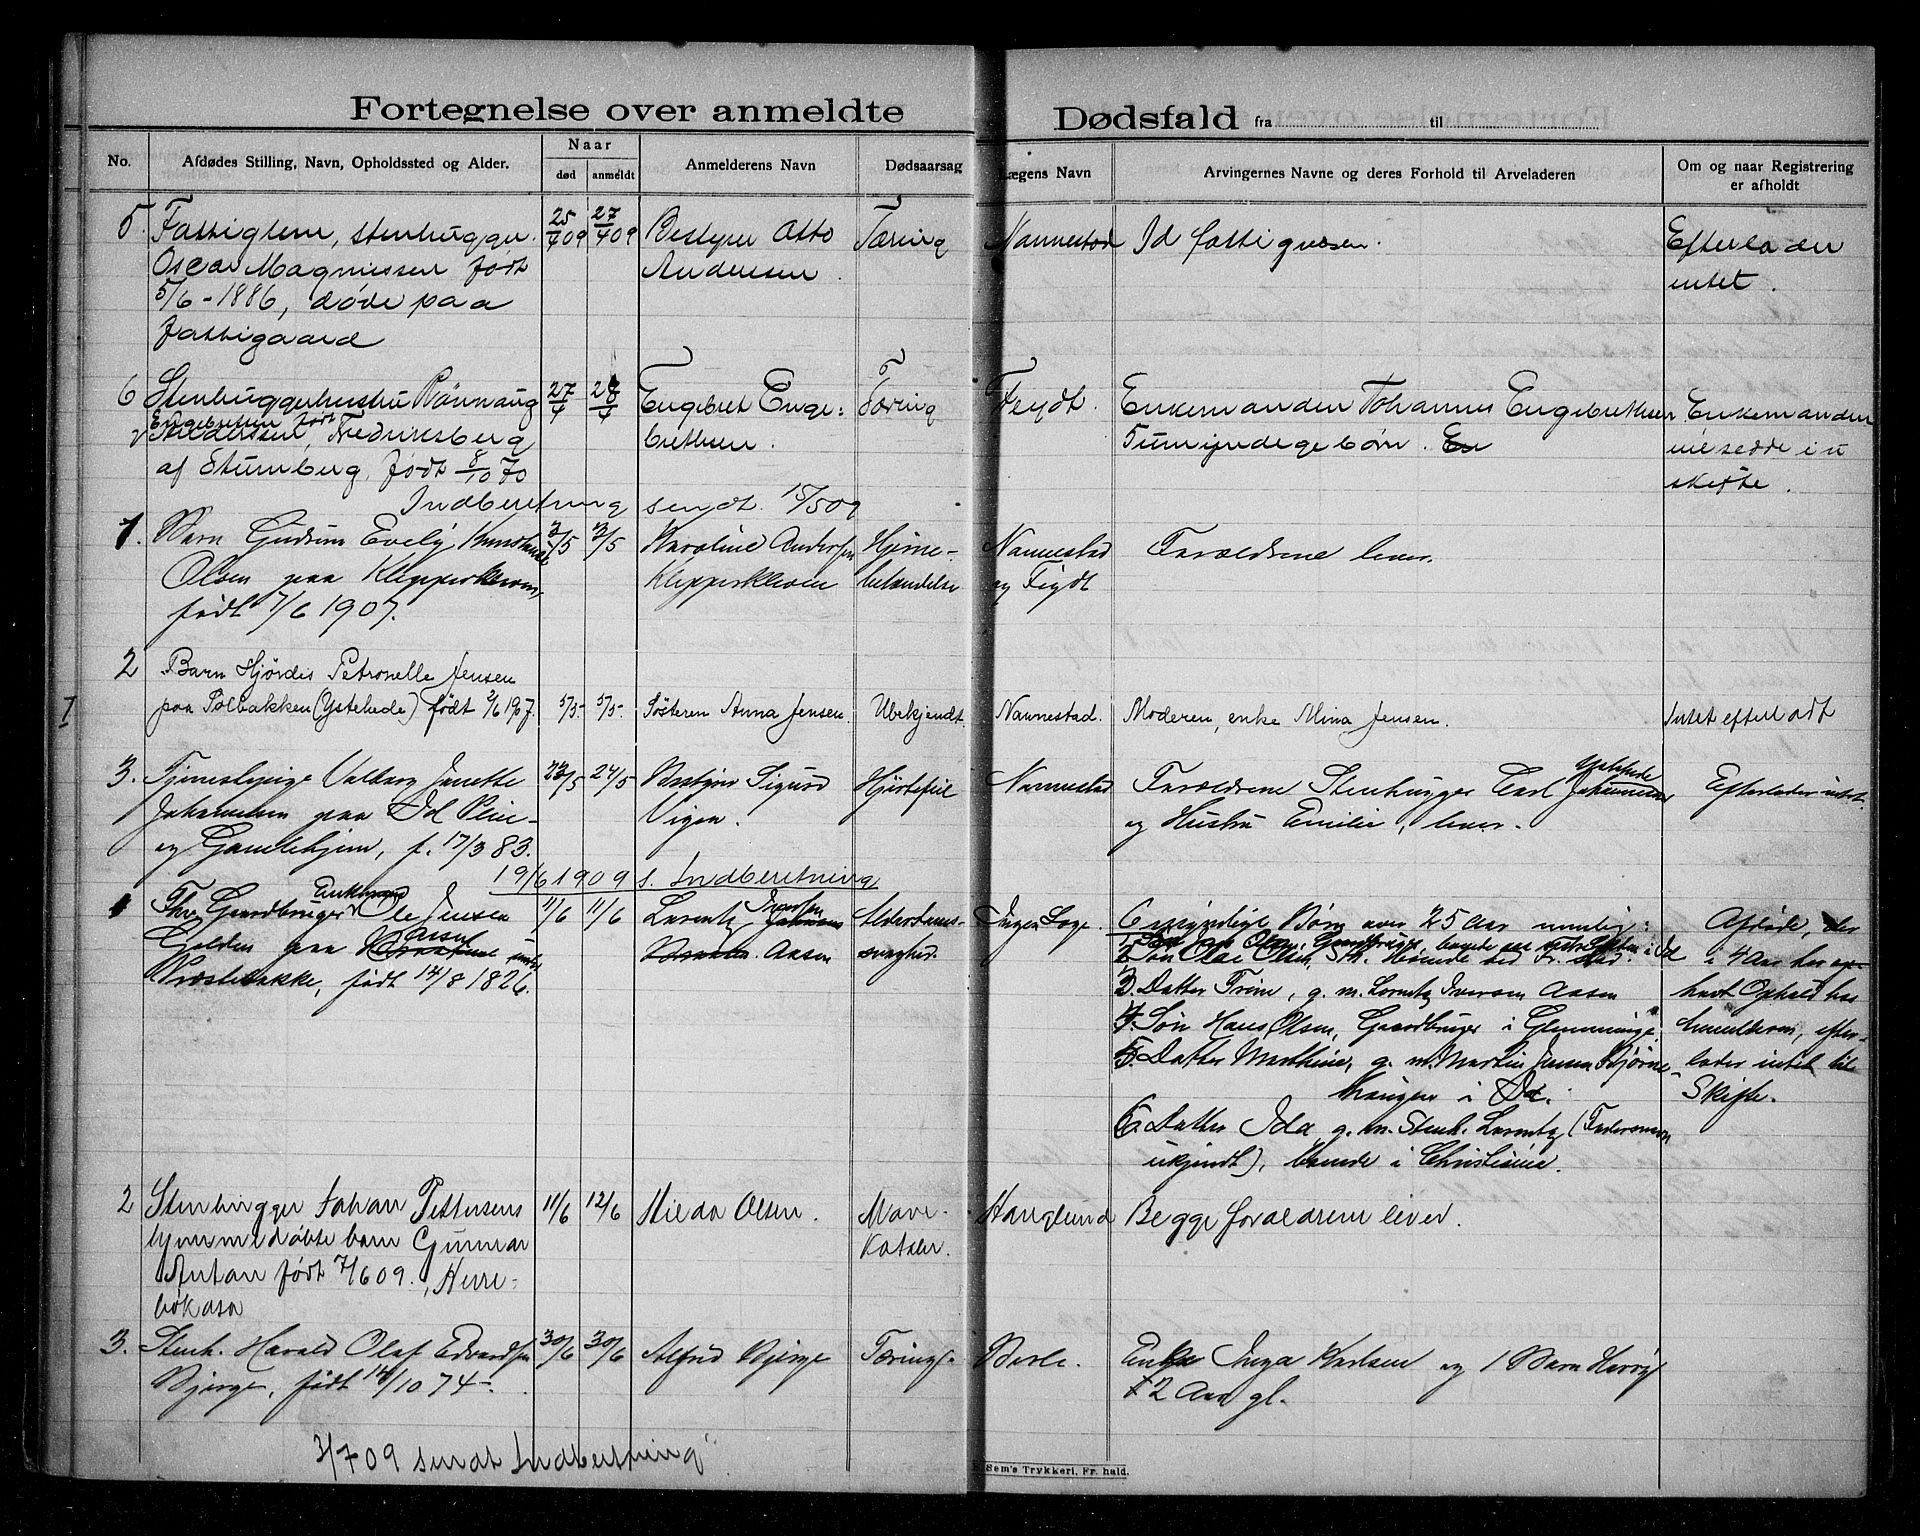 Fortegnelse over anmeldte Dødsfald fra til
No. Afdødes Stilling, Navn, Opholdssted og Alder. Naar død anmeldt Anmelderens Navn Dødsaarsag Lægens Navn Arvingernes Navne og deres Forhold til Arveladeren Om og naar Registrering er afholdt
5. Fattiglem, stenhugger 25/4 09 27/4 09 Bestyrer Otto Tæring Nannestad Id fattigvæsen. Efterlader
Oscar Magnussen født Andersen. intet.
5/6-1886, døde paa
fattigaard
6 Stenhuggerhustru Rønnaug 27/4 28/4 Engebret Enge= Tæring Feydt. Enkemanden Johannes Engebrethsen Enkemanden
Engebretsen født
Anderssen, Fredriksberg brethsen. 5 umyndege børn. En
af Stumberg, født 8/10 70 skifte.
Indberetning sendt 15/5 09
1. Barn Gudrun Evely 3/5 3/5 Karoline Andersen Hjerne- Nannestad Forældrene lever.
Olsen paa Klepperkleven, Klepperkleven betændelse og Feydt
født 7/6 1907.
2 Barn Hjørdis Petronelle Jensen
paa Tolbakken (Ystehede) født 2/6 1907. 5/5- 5/5- Søsteren Anna Jensen. Ubekjendt. Nannestad. Moderen, enke Mina Jensen. Intet efterladt
3. Tjenestepige Valborg Janette 23/5 24/5 Bestyrer Sigurd Hjertefeil Nannestad Forældrene Stenhugger Carl Johannessen Ystehede Efterlader intet.
Johannesen paa Id Pleie- Vigen. og Hustru Emilie, lever.
og Gamlehjem, f. 17/3 83.
19/6 1909 s. Indberetning
1 Fhv. Gaardbruger Enkemand Ole Jensen 11/6 11/6 Lorentz Iversen Alderdoms- Ingen Læge. 6 myndige Børn over 25 Aar nemlig: Afdøde, der
paa Aasen Aasen svaghed. Søn Ole Olsen, i 4 Aar har op-
Præstebakke, født 14/8 1826. 3. Datter Trine, g. m. Lorentz Iversen Aasen havt Ophold hos
4. Søn Hans Olsen, Gaardbruger i Glemminge. anmelderen, efter-
5. Datter Mathine, g. m. Martin Jensen Bjørne- lader intet til
haugen i Id. Skifte.
6. Datter Ida g. m. Stenh. Lorentz (Farsnavn
ukjendt), boende i Christiania.
2 Stenhugger Johan Pettersens 11/6 12/6 Hilda Olsen. Mave- Hauglund Begge forældrene lever.
hjemmedøbte barn Gunnar Katahr.
Antan født 7/6 09., Herre-
bøkasa
3. Stenh. Harald Olaf Edvardsen 30/6 30/6 Alfred Bjerge Tæring Berle. Enke Inga Karlsen og 1 Barn Harry
Bjerge, født 14/10 74-. 2 Aar gl.
3/7 09 sendt Indberetning
Sem's Trykkeri, Fr.hald.